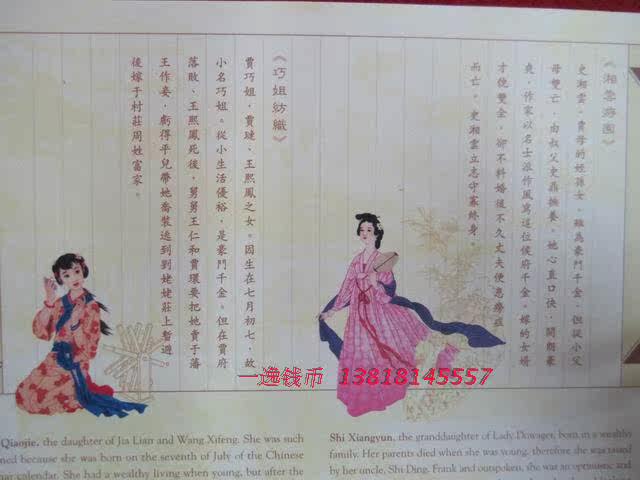 《湘雲游園》
史湘雲，賈母的姪孫女，雖為豪門千金，但從小父
母雙亡，由叔父史鼎撫養。她心直口快，開朗豪
爽，作家以名士派作風寫這位候府千金。嫁的女婿
才貌雙全，卻不料婚後不久丈夫便患癆症
而亡，史湘雲立志守寡終身。
《巧姐紡織》
賈巧姐，賈璉、王熙鳳之女。因生在七月初七，故
小名巧姐。從小生活優裕，是豪門千金。但在賈府
落敗、王熙鳳死後，舅舅王仁和賈環要把她賣于藩
王作妾，虧得平兒帶她喬裝逃到劉姥姥莊上暫避。
後嫁于村莊周姓富家。
一逸钱币 13818145557
Qiaojie, the daughter of Jia Lian and Wang Xifeng. She was such
ned because she was born on the seventh of July of the Chinese
nar calendar. She had a wealthy living when young, but after the
Shi Xiangyun, the granddaughter of Lady Dowager, born in a wealthy
family. Her parents died when she was young, therefore she was taised
by her uncle, Shi Ding. Frank and outspoken, she was an optimistic and